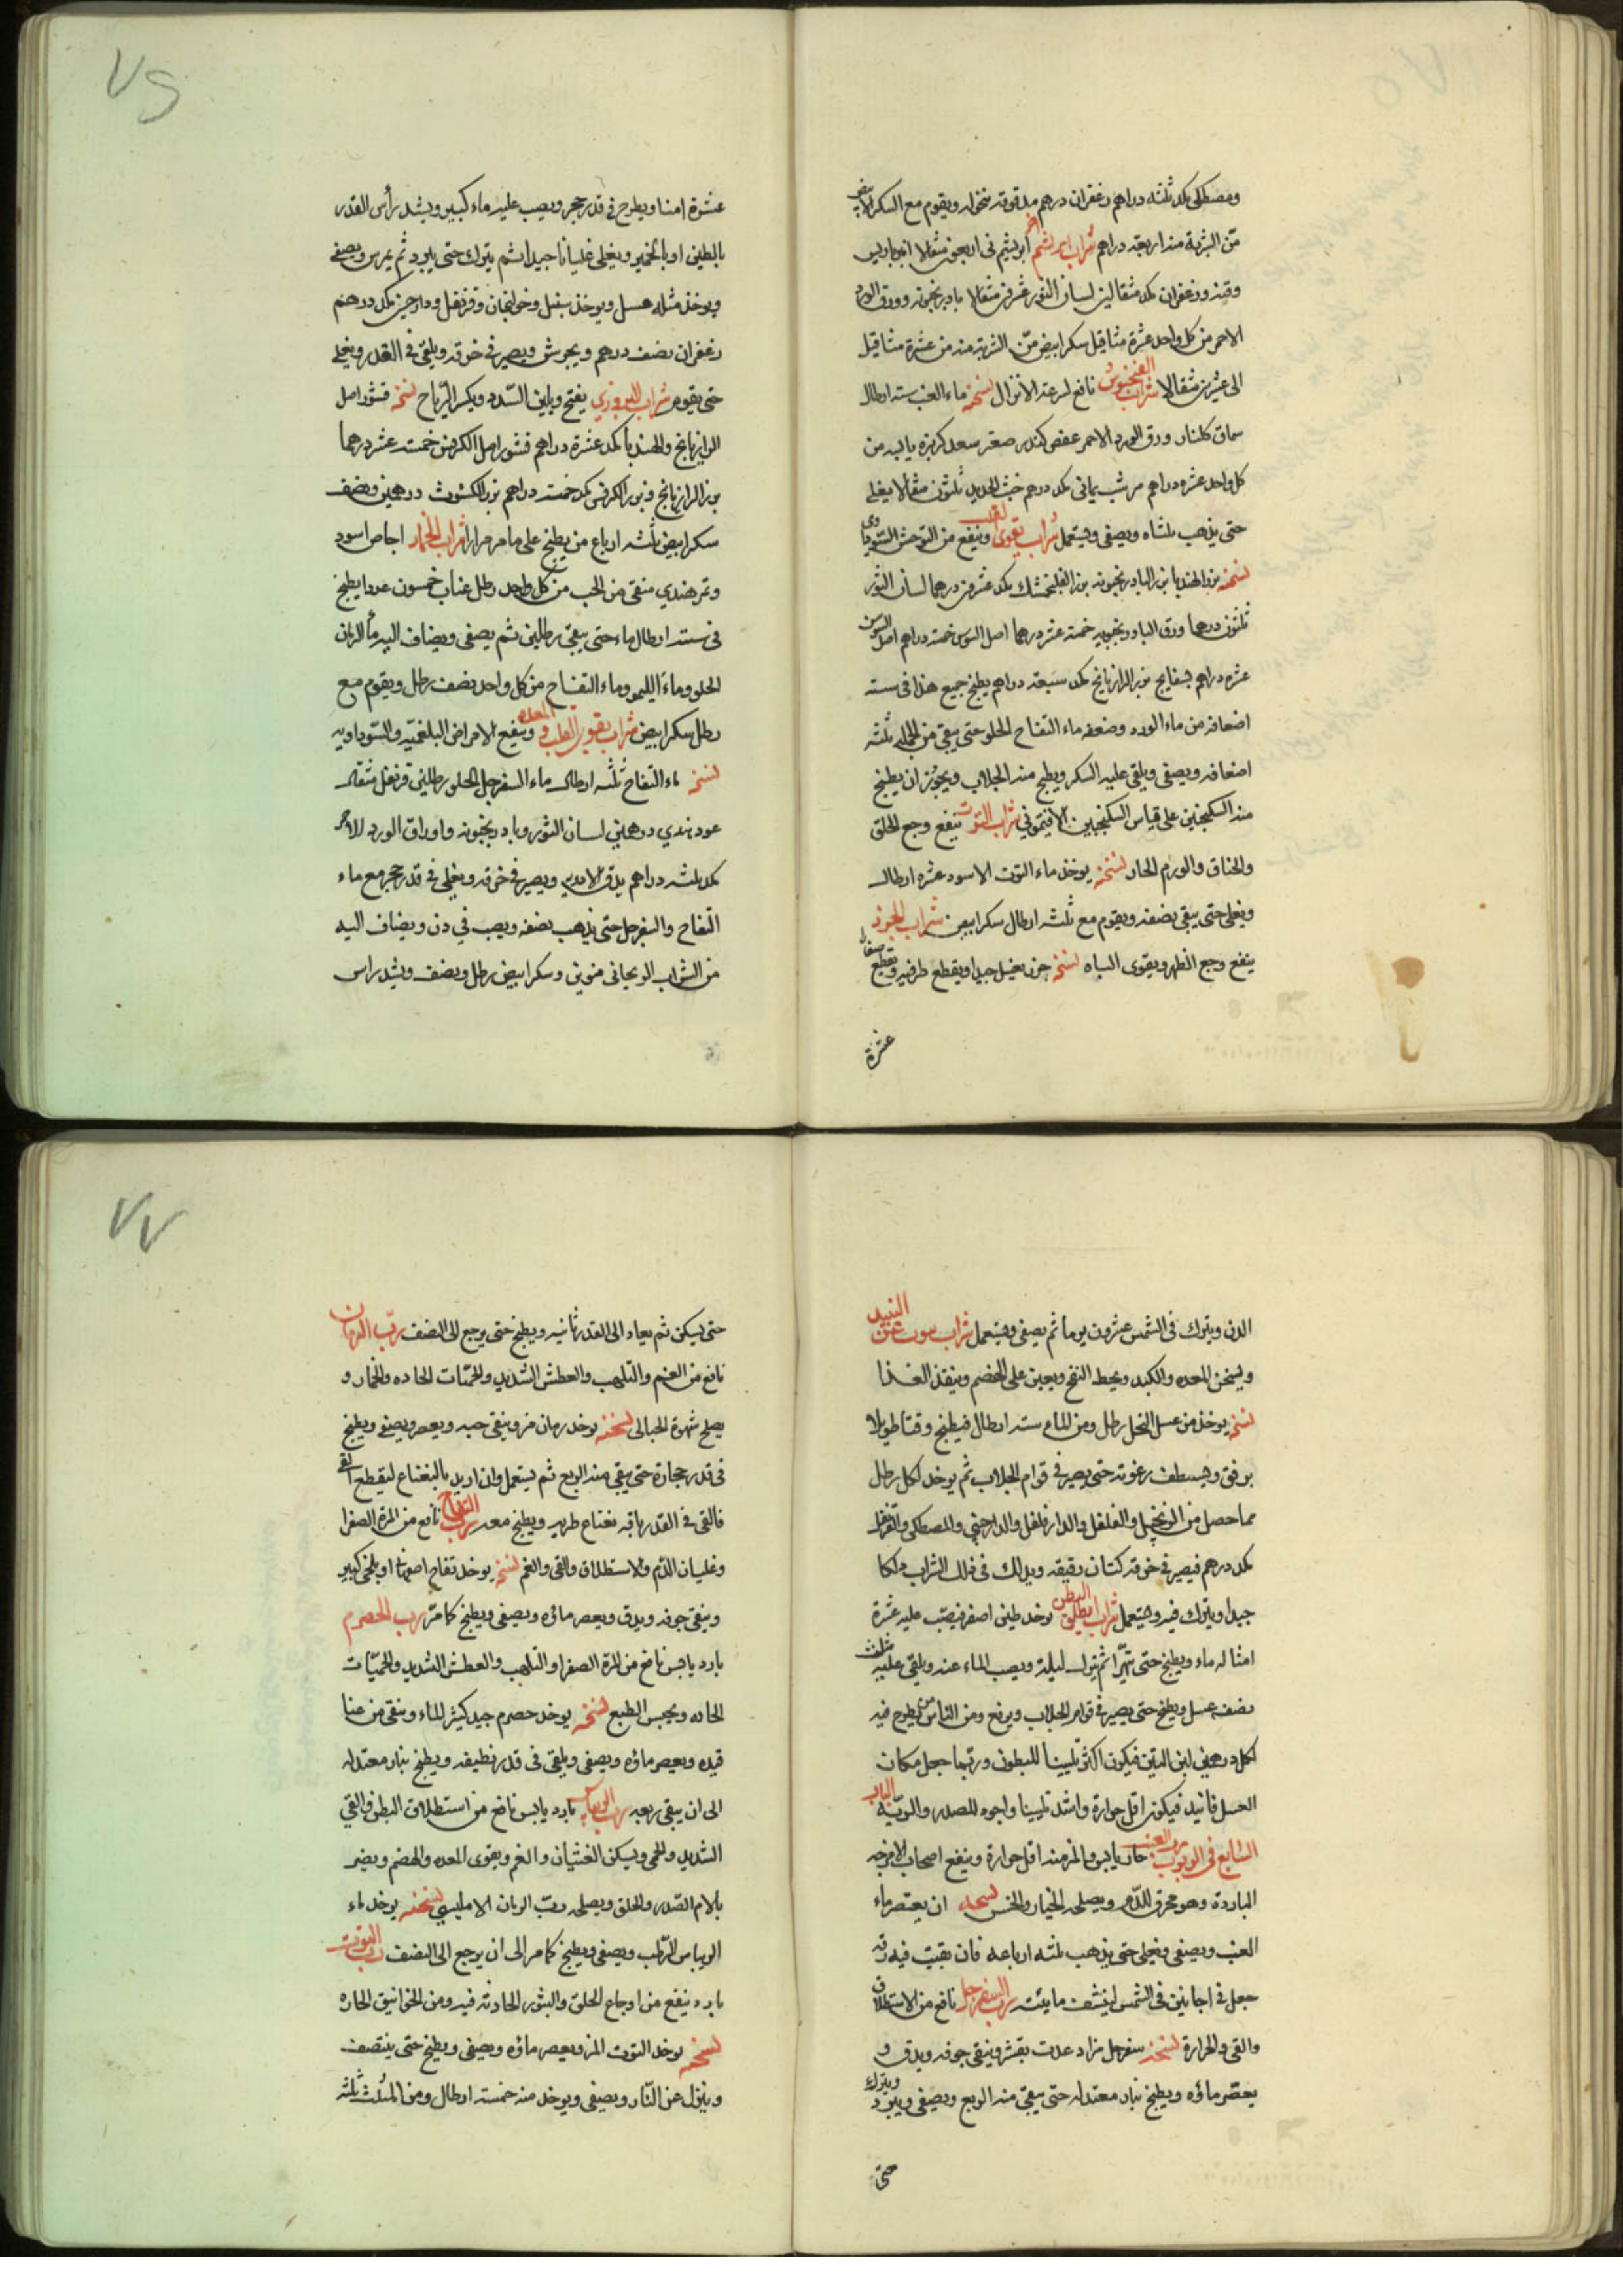 ومصطكى بكد ثلثه دراهم زعفران درهم مدقوقه منخوله ويقوم مع السكر الابيض
منّ الشربة منه اربعة دراهم شراب ابريشم ابريشم نى اربعون مثقالا
وزعفران بكد مثقالين لسان الثور عشرون مثقالا بادرنجبويه وورق الورد
الاحمر من كل واحد عشرة مثاقيل سكر ابيض منّ الشربة منه من عشرة مثاقيل
الى عشرين مثقالا شراب الفنجنوش نافع لسرعة الانزال نسخته ماء العنب سته ارطال
سماق كلنار ورق الورد الاحمر عفص كندر صعتر سعد كزبره يابسه من
كل واحد عشره دراهم مر شب يمانى بكد درهم خبث الحديد ثلثون مثقالا يغلى
حتى يذهب ثلثاه ويصفى ويستعمل شراب يقوى القلب وينفع من التوحش السوداوى
نسخته بزر الهندبا بزر البادرنجبويه بزر الفلنجمشك بكد عشرين درهما لسان الثور
ثلثون درهما ورق البادرنجبويه خمسة عشر درهما اصل السوس خمسة دراهم اصل السوسن
عشره دراهم بسفايج بزر الرازيانج بكد سبعة دراهم يطبخ جميع هذا فى سته
اضعافه من ماء الورد وضعفه ماء التفاح الحلو حتى يبقى من الجمله ثلثه
اضعافه ويصفى ويلقى عليه السكر ويطبخ منه الجلاب ويجوز ان يطبخ
منه السكنجبين على قياس السكنجبين الافتيمونى شراب التوت ينفع وجع الحلق
والخناق والورم الحار نسخته يوخذ ماء التوت الاسود عشره ارطال
ويغلى حتى يبقى نصفه ويقوم مع ثلثه ارطال سكر ابيض شراب الجزر
ينفع وجع الظهر ويقوى الباه نسخته جزر يغسل جيدا ويقطع طرفيه ويقطع صغارا
عشرة
٧٦
عشرة امنا ويطرح فى قدر حجر ويصب عليه ماء كبير ويشد رأس القدر
بالطين او بالخمير ويغلى غليانا جيدا ثم يترك حتى يبرد ثم يمرس ويصفى
ويوخذ مثله عسل ويوخذ سنبل وخولنجان وقرنفل ودارچين بكد درهم
زعفران نصف درهم ويجرش ويصير فى خرقه ويلقى فى القدر ويغلى
حتى يقوم شراب البزورى يفتح ويلين السدد ويكسر الرياح نسخته قشور اصل
الرازيانج والهندبأ بكد عشرة دراهم قشور اصل الكرفس خمسة عشر درهما
بزر الرازيانج وبزر الكرفس بكد خمسة دراهم بزر الكشوث درهمين ونصف
سكر ابيض ثلثه ارباع من يطبخ على ما مر مرارا شراب الخمار اجاص اسود
وتمر هندي منقى من الحب من كل واحد رطل عناب خمسون عددا يطبخ
فى سته ارطال ماء حتى يبقى رطلين ثم يصفى ويضاف اليه مأ الرمان
الحلو وماء الليمو وماء التفاح من كل واحد نصف رطل ويقوم مع
رطل سكر ابيض شراب يقوى القلب والمعده وينفع الامراض البلغميه والسوداويه
نسخته ماء التفاح ثلثه ارطال ماء السفرجل الحلو رطلين قرنفل مثقال
عود هندي درهمين لسان الثور وبادرنجبويه واوراق الورد الاحمر
بكد ثلثه دراهم يدق الادويه ويصير فى خرقه ويغلى فى قدر حجر مع ماء
التفاح والسفرجل حتى يذهب نصفه ويصب فى دن ويضاف اليه
من الشراب الريحانى منوين وسكر ابيض رطل ونصف ويشد راس
الدن ويترك فى الشمس عشرون يوما ثم يصفى ويستعمل شراب ينوب عن النبيذ
ويسخن المعده والكبد ويحط النفخ ويعين على الهضم وينفذ الغذا
نسخته يوخذ من عسل النحل رطل ومن الماء سته ارطال فيطبخ وقتا طويلا
برفق ويستقطف رغوته حتى يصير فى قوام الجلاب ثم يوخذ لكل رطل
مما حصل من الزنجبيل والفلفل والدارفلفل والدارچينى والمصطكى والقرنفل
بكد درهم فيصير فى خرقه كتان رقيقه ويدلك فى ذلك الشراب دلكا
جيدا ويترك فيه ويستعمل شراب يطلق البطن يوخذ طين اصفر فيصب عليه عشرة
امثاله ماء ويطبخ حتى يتهرا ثم يترك ليلة ويصب الماء عنه ويلقى عليه مثلث
نصفه عسل ويطبخ حتى يصير فى قوام الجلاب ويرفع ومن الناس من يطرح فيه
لكل درهمين لبن التين فيكون اكثر تليينا للبطون وربما جعل مكان
العسل فانيذ فيكون اقل حرارة واشد تليينا واجود للصدر والريّه الباب
السابع فى الربوب رب العنب حار يابس والمز منه اقل حرارة وينفع اصحاب الامزجه
الباردة وهو محرق للدم ويصلحه الخيار والخس نسخته ان يعتصر ماء
العنب ويصفى ويغلى حتى يذهب ثلثه ارباعه فان بقيت فيه رقه
جعل فى اجانين فى الشمس لينشف مائيته رب السفرجل نافع من الاستطلاق
والقى والحرارة نسخته سفرجل مز اد عذب يقشر وينقى جوفه ويدق و
يعصر ماؤه ويطبخ بنار معتدله حتى يبقى منه الربع ويصفى ويبرد ويترك
حتى
٧٧
حتى يسكن ثم يعاد الى القدر ثانيه ويطبخ حتى يرجع الى النصف رب الرمان
نافع من الغم والتلهب والعطش الشديد والحميات الحاده والخمار و
يصلح شهوة الحبالى نسخته يوخذ رمان مز وينقى حبه ويعصر ويصفى ويطبخ
فى قدر حجارة حتى يبقى منه الربع ثم يستعمل وان اريد بالنعناع ليقطع القى
فالقى فى القدر باقه نعناع طريه ويطبخ معه رب التفاح نافع من المرة الصفرا
وغليان الدم والاستطلاق والقى والغم نسخته يوخذ تفاح اصفهانى او بلخى كبير
وينقى جوفه ويدق ويعصر ماؤه ويصفى ويطبخ كما مرّ رب الحصرم
بارد يابس نافع من المرة الصفرا والتلهب والعطش الشديد والحميّات
الحاده ويحبس الطبع نسخته يوخذ حصرم جيد كثير الماء وينقى من عنا
قيده ويعصر ماؤه ويصفى ويلقى فى قدر نظيفه ويطبخ بنار معتدله
الى ان يبقى ربعه رب الريباس بارد يابس نافع من استطلاق البطن والقي
الشديد والحمى ويسكن الغثيان والغم ويقوى المعده والهضم ويضر
بالام الصدر والحلق ويصلحه ربّ الرمان الامليسى نسخته يوخذ ماء
الريباس الرطب ويصفى ويطبخ كما مر الى ان يرجع الى النصف رب التوت
بارد ينفع من اوجاع الحلق والبثور الحادثه فيه ومن الخوانيق الحاره
نسخته يوخذ التوت المز ويعصر ماؤه ويصفى ويطبخ حتى ينتصف
وينزل عن النار ويصفى ويوخذ منه خمسة ارطال ومن المثلث ثلثه